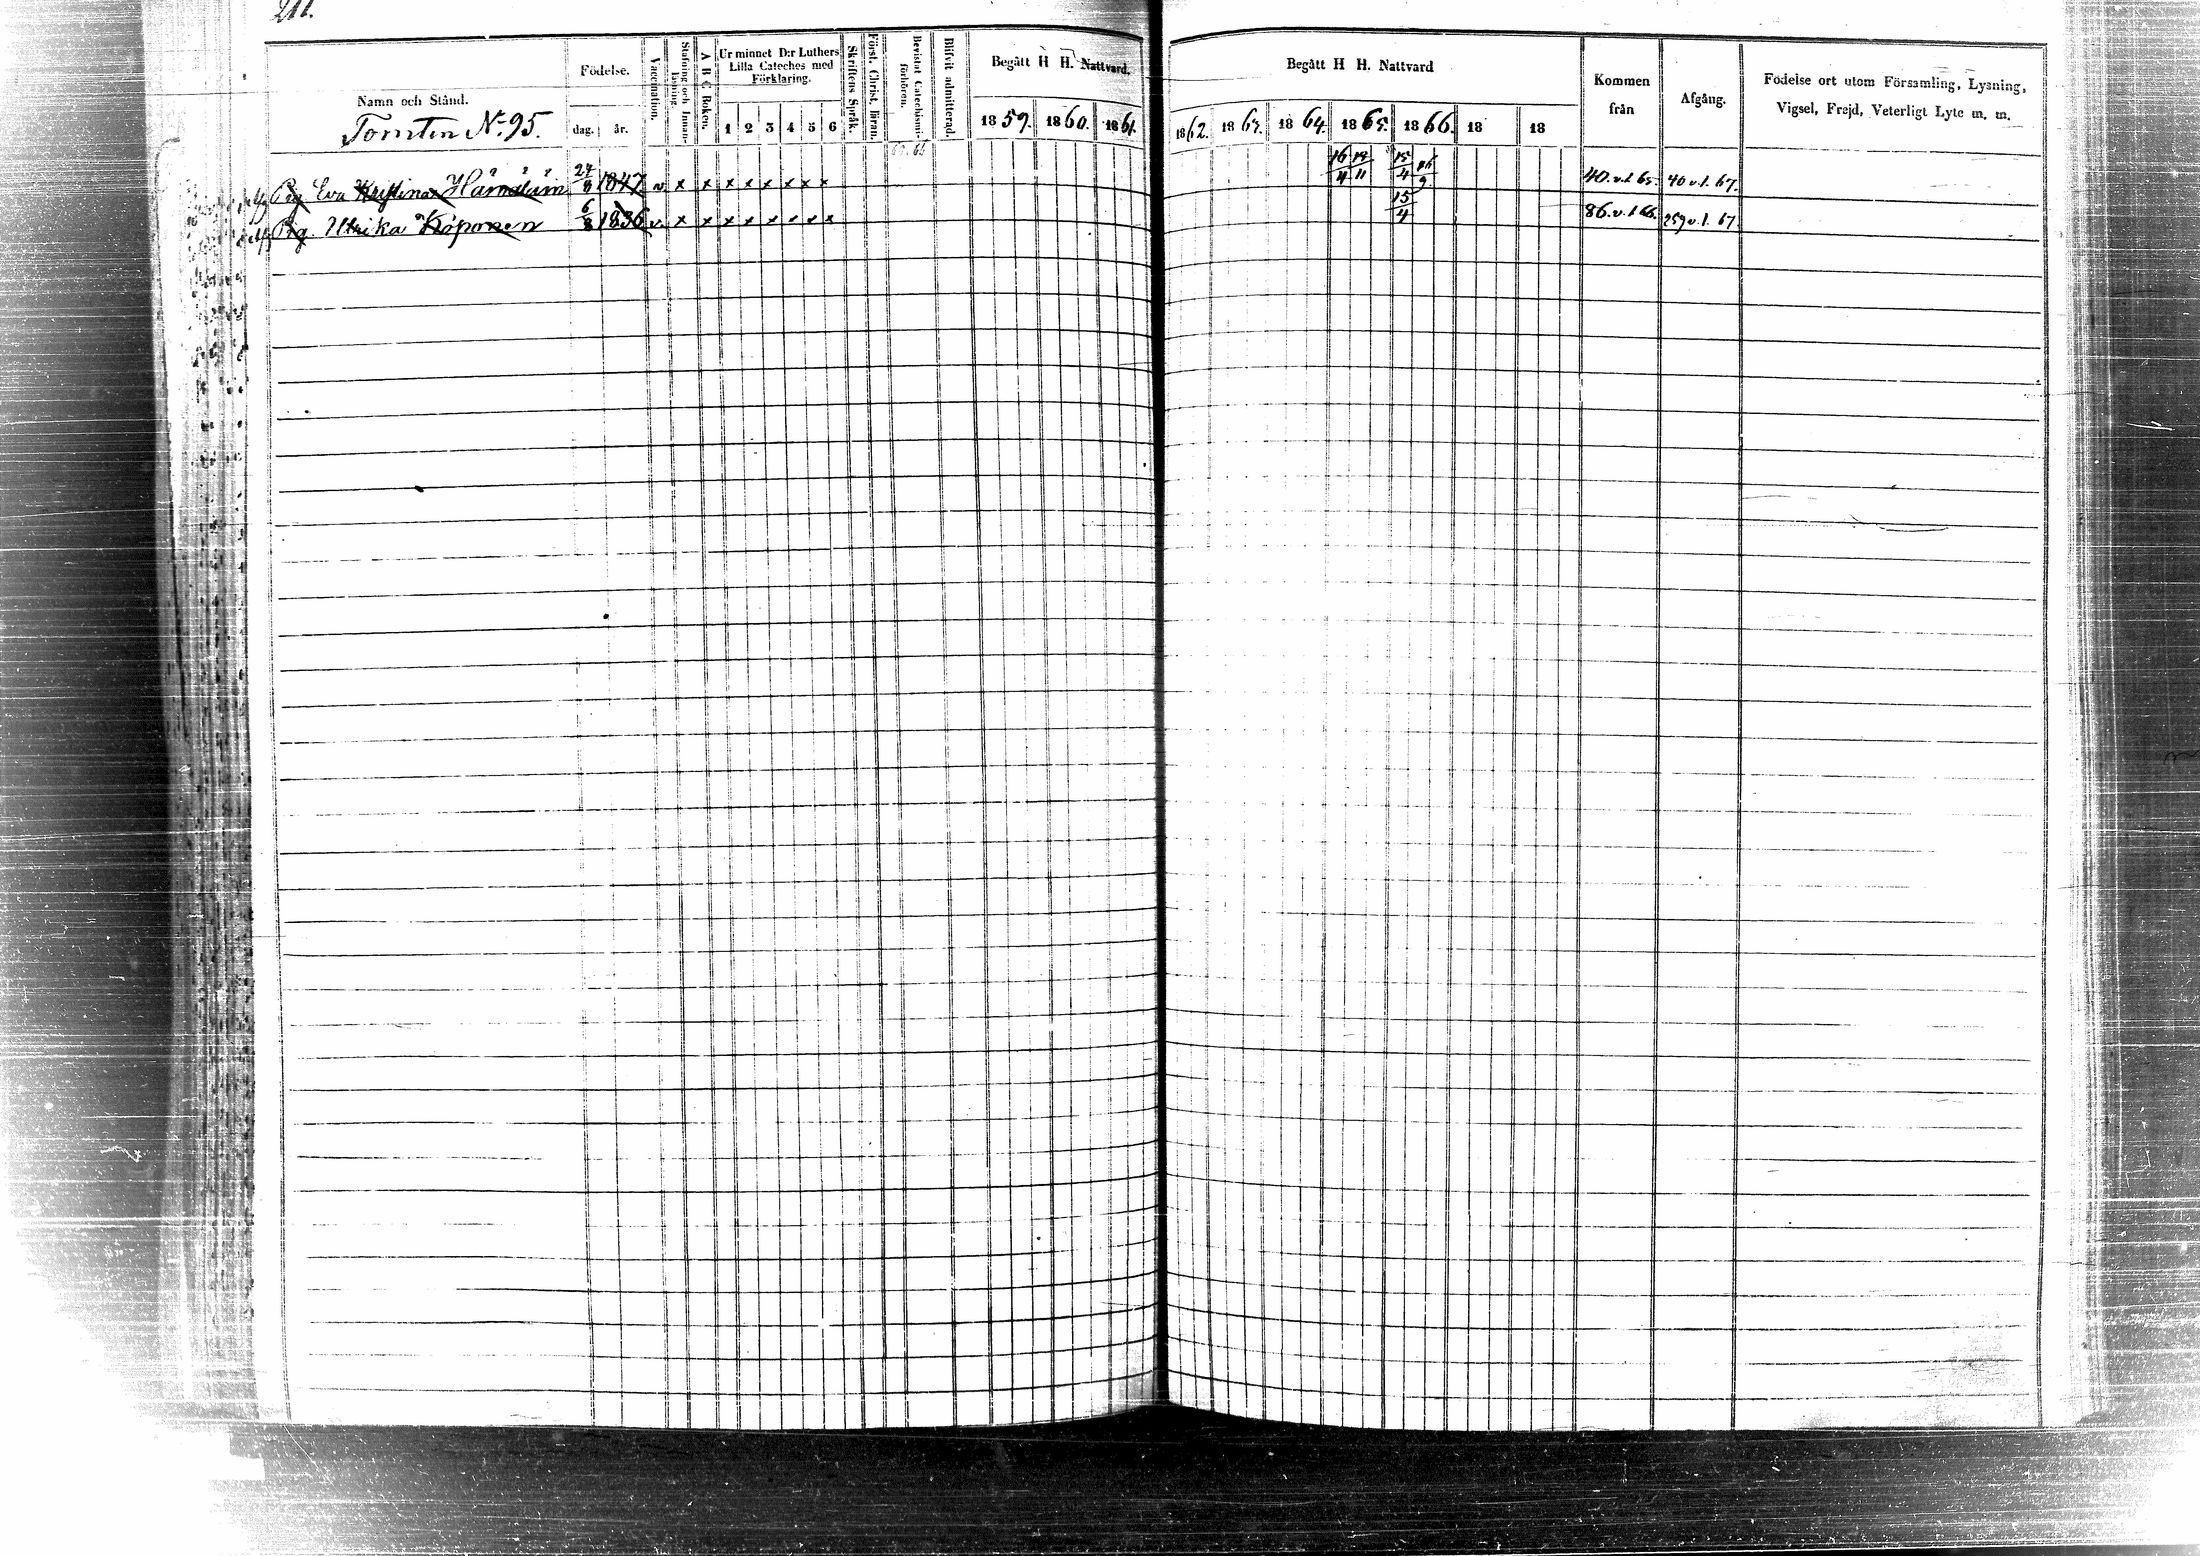 Namn och Stånd.
Tomten N:o 95.
Födelse.
dag. år.
Vaccination.
Stafning och Innanläsning.
A B C Boken.
Ur minnet D:r Luthers
Lilla Cateches med
Förklaring.
1 2 3 4 5 6
Skriftens Språk.
Först. Christ. läran.
Bevistat Catechismi-
förhören.
Blifvit admitterad.
Begått H H. Nattvard.
1859. 1860. 1861.
Begått H H. Nattvard
1862. 1863. 1864. 1865. 1866. 18 18
Kommen
från
Afgång.
Födelse ort utom Församling, Lysning,
Vigsel, Frejd, Veterligt Lyte m. m.
Pig. Eva Kristina Hämäläin 27/8 1847 v x x x x x x x x 16/4 19/11 15/4 40.v.l 65. 40 v.l. 67.
Pig. Ulrika Köponen 6/8 1836 v. x x x x x x x x 15/4 86.v.l 66. 259 v.l. 67.